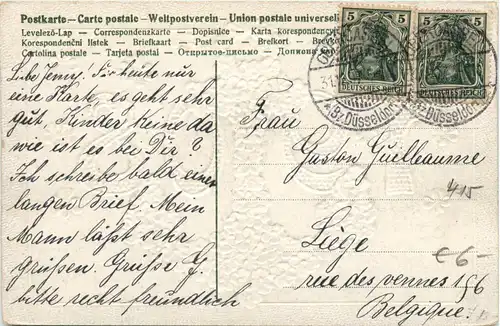 Postkarte — Carte postale — Weltpostverein — Union postale universel
Levelező-Lap — Correspondenzkarte — Dopisnice — Karta korespondencyj
Korespondenční lístek — Briefkaart — Post card — Brefkort — Brev
Cartolina postale — Tarjeta postal — Открытое письмо — Дописна
5 5 5 5
DEUTSCHES REICH DEUTSCHES REICH
31.
* Bz. Düsseldorf * Bz. Düsseldorf
Libe Jemy. Für heute nur
eine Karte, es geht sehr
gut, Kinder keine da
wie ist es bei Dir?
Ich schreibe bald einen
langen Brief. Mein
Mann läßt sehr
grüßen. Grüße G.
bitte recht freundlich
Frau
Gaston Guillaume
415
Liège
€6-
rue des vennes 156
Belgique.